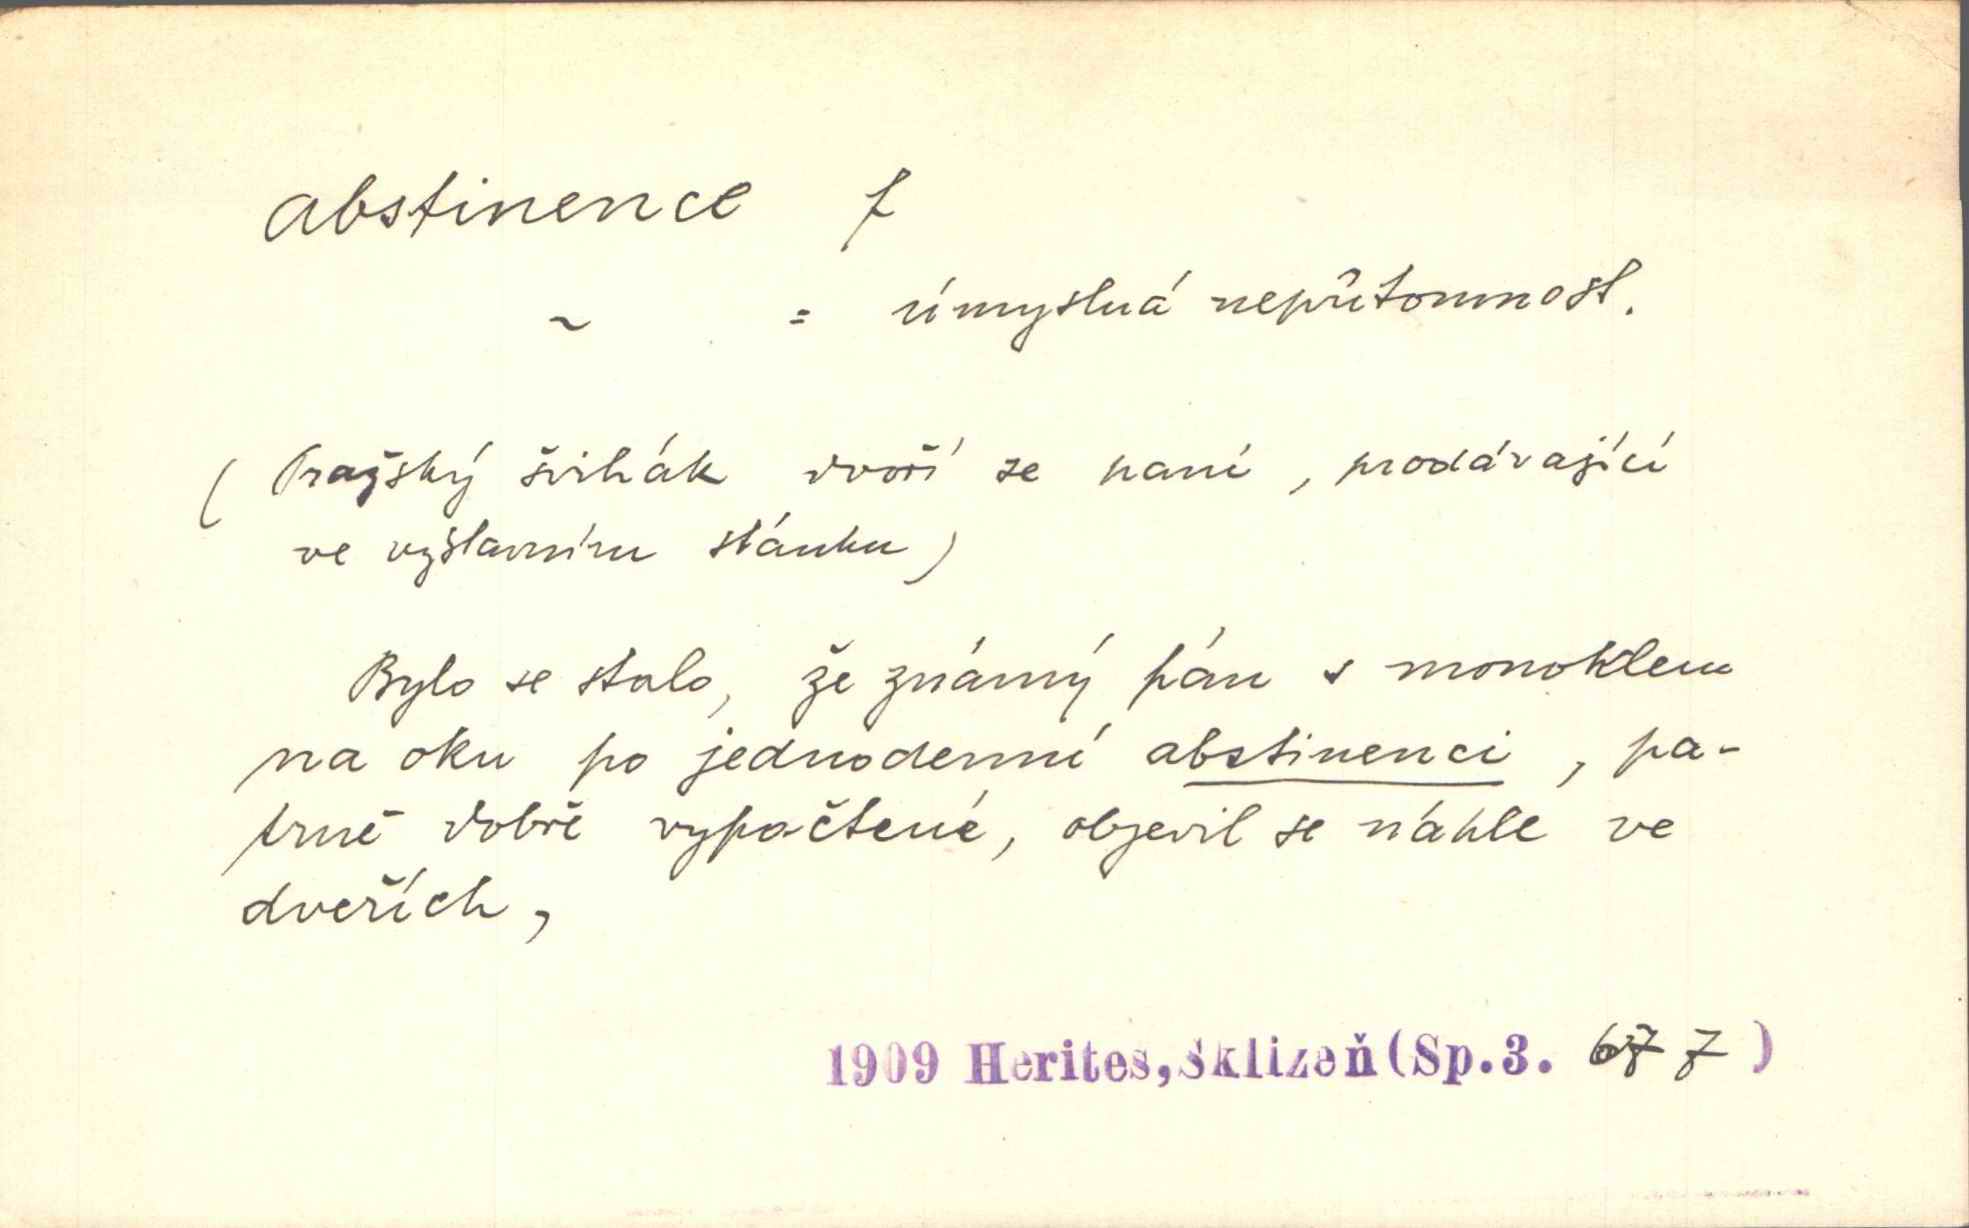 abstinence f
~ = úmyslná nepřítomnost.
( Pražský švihák dvoří se paní, prodávající
ve výstavním stánku)
Bylo se stalo, že známý pán s monoklem
na oku po jednodenní abstinenci, pa-
trně dobře vypočtené, objevil se náhle ve
dveřích,
1909 Herites, Sklizeň (Sp. 3. 677)